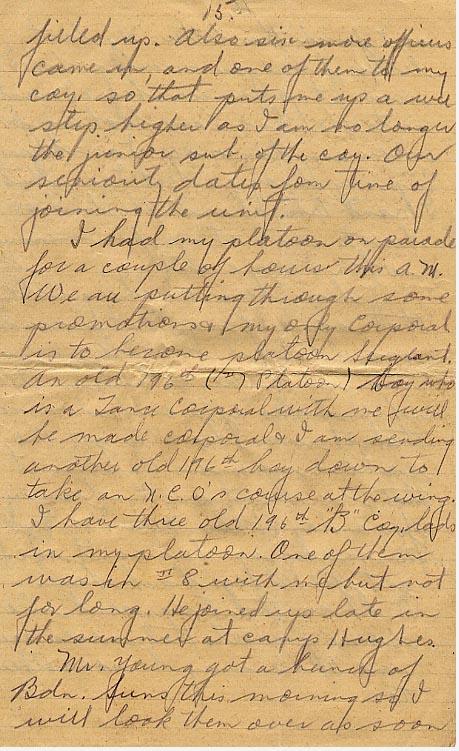 15.
filled up. Also six more officers
came in, and one of them to my
coy. so that puts me up a wee
step higher as I am no longer
the junior sub. of the coy. Our
seniority dates from time of
joining the unit.
I had my platoon on parade
for a couple of hours this a.m.
We are putting through some
promotions & my only Corporal
is to become platoon Sergeant.
An old 196th (1st Platoon) boy who
is a Lance Corporal with me will
be made corporal & I am sending
another old 196th boy down to
take an N.C.O's course at the wing.
I have three old 196th "B" Coy. lads
in my platoon. One of them
was in 8 with me but not
for long. He joined us late in
the summer at camp Hughes.
Mr. Young got a bunch of
Bdn. Suns this morning so I
will look them over as soon